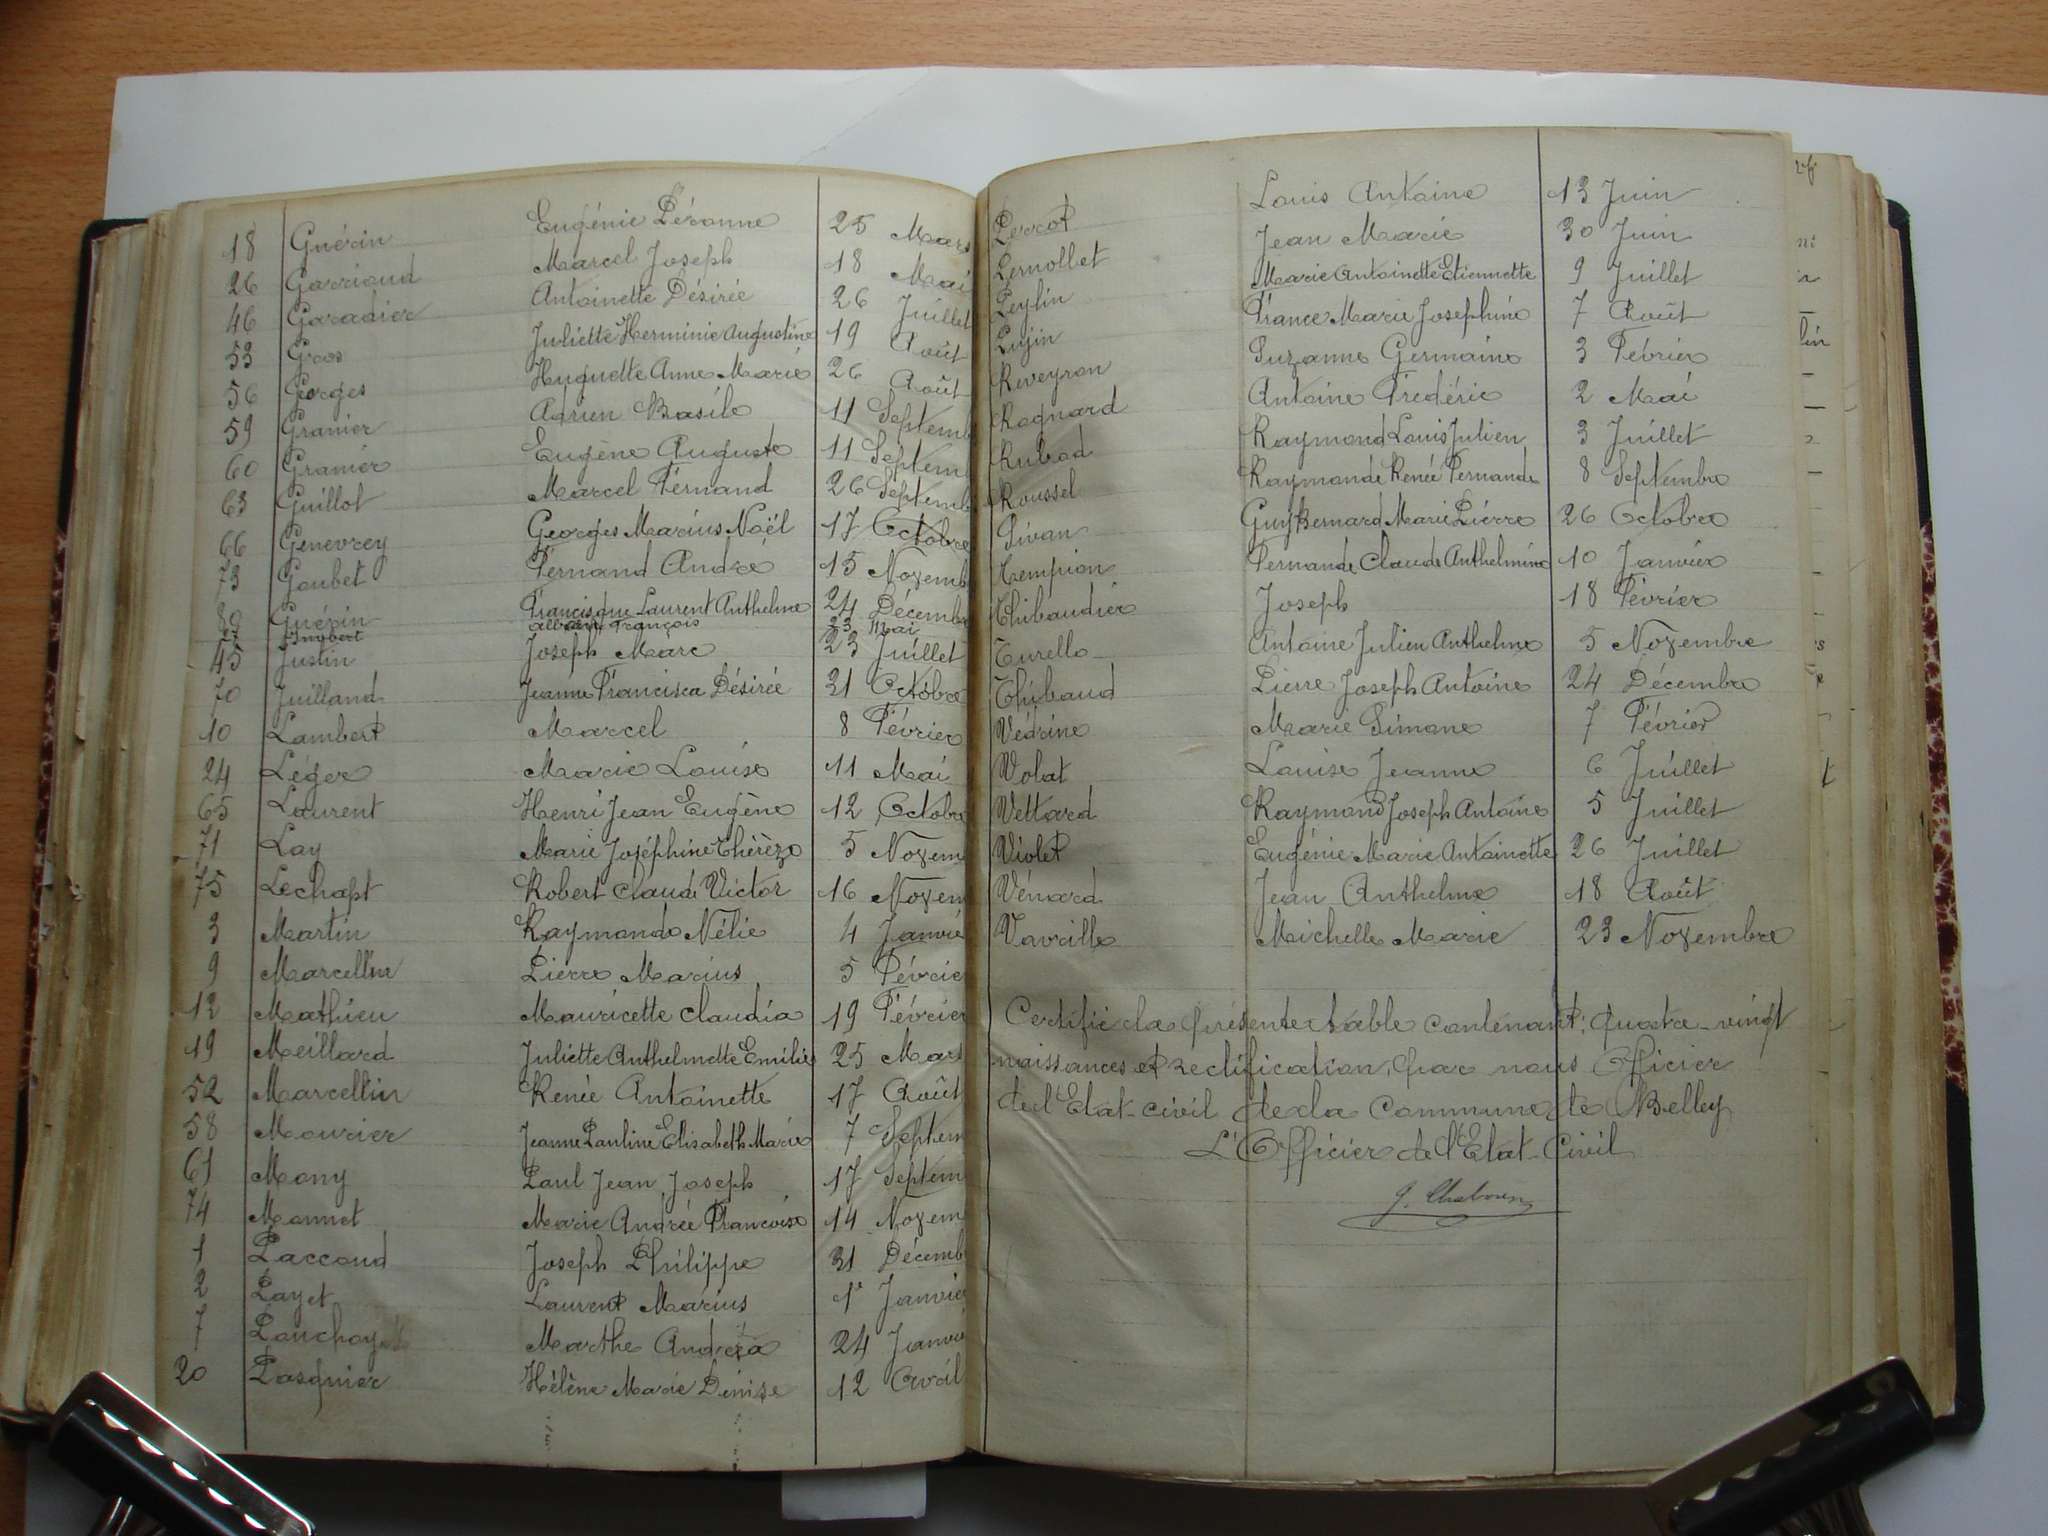 18 Guérin Eugénie Péronne 25 Mars
26 Garriaud Marcel Joseph 18 Mai
46 Garadier Antoinette Désirée 26 Juillet
53 Gros Juliette Herminie Augustine 19 Août
56 Georges Huguette Anne Marie 26 Août
59 Granier Adrien Basile 11 Septemb
60 Granier Eugène Auguste 11 Septem
63 Guillot Marcel Fernand 26 Septemb
66 Genevrey Georges Marius Noël 17 Octobre
73 Goubet Fernand André 15 Novemb
80 Guérin Francisque Laurent Anthelme 24 Décembre
27 François 23 Mai
45 Justin Joseph Marc 23 Juillet
70 Juilland Jeanne Francisca Désirée 31 Octobre
10 Lambert Marcel 8 Février
24 Léger Marie Louise 11 Mai
65 Laurent Henri Jean Eugène 12 Octobre
71 Lay Marie Joséphine Thérèze 5 Novem
75 Lechapt Robert Claude Victor 16 Novem
3 Martin Raymonde Nélie 4 Janvie
9 Marcellin Pierre Marius 5 Février
12 Mathieu Mauricette Claudia 19 Février
19 Meillard Juliette Anthelmette Emilie 25 Mars
52 Marcellin Renée Antoinette 17 Août
58 Mourier Jeanne Pauline Elisabeth Marie 7 Septem
61 Mony Paul Jean Joseph 17 Septem
74 Monnet Marie Andrée Françoise 14 Novem
1 Paccoud Joseph Philippe 31 Décemb
2 Payet Laurent Marius 1er Janvie
7 Ponchoy Marthe Andréa 24 Janvie
20 Pasquier Hélène Marie Denise 12 Avril
Perrot Louis Antoine 13 Juin
Pernollet Jean Marie 30 Juin
Peylin Marie Antoinette Etiennette 9 Juillet
Pujin France Marie Joséphine 7 Août
Reveyron Suzanne Germaine 3 Février
Rognard Antoine Frédéric 2 Mai
Rubod Raymond Louis Julien 3 Juillet
Roussel Raymonde Renée Fernande 8 Septembre
Sivan Guy Bernard Marie Pierre 26 Octobre
Tempion Fernande Claude Anthelmine 10 Janvier
Thibaudier Joseph 18 Février
Turello Antoine Julien Anthelme 5 Novembre
Thibaud Pierre Joseph Antoine 24 Décembre
Védrine Marie Simone 7 Février
Volat Louise Jeanne 6 Juillet
Vettard Raymond Joseph Antoine 5 Juillet
Violet Eugénie Marie Antoinette 26 Juillet
Vénard Jean Anthelme 18 Août
Vavrille Michelle Marie 23 Novembre
Certifié la présente table contenant, quatre-vingt
naissances et rectification, par nous Officier
de l'Etat-civil de la Commune de Belley
L'Officier de l'Etat-Civil